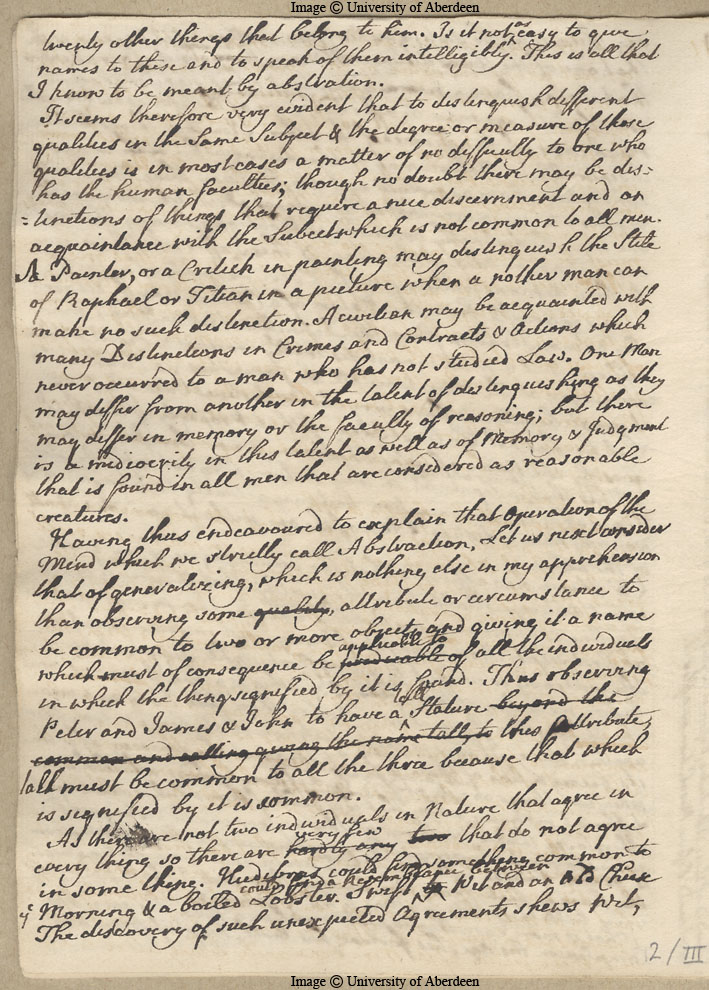 Image © University of Aberdeen
twenty other things that belong to him. Is it not as easy to give
names to these and to speak of them intelligibly. This is all that
I know to be meant by abstration.
It seems therefore very evident that to distinguish different
qualities in the Same Subject & the degree or measure of those
qualities is in most cases a matter of no difficulty to one who
has the human faculties; though no doubt there may be dis=
=tinctions of things that require a nice discernment and an
acquaintance with the Subject which is not common to all men.
A Painter, or a Critick in painting may distinguish the Stile
of Raphael or Titian in a picture when a nother man can
make no such distinction. A civilian may be acquainted with
many Distinctions in Crimes and Contracts & Actions which
never occurred to a man who has not studied Law. One Man
may differ from another in the talent of distinguishing as they
may differ in memory or the faculty of reasoning; but there
is a mediocrity in this talent as well as of Memory & Judgment
that is found in all men that are considered as reasonable
creatures.
Having thus endeavoured to explain that Operation of the
Mind which we strictly call Abstraction, Let us next consider
that of generalizing, which is nothing else in my apprehension
than observing some quality, attribute or circumstance to
be common to two or more objects and giving it a name
which must of consequence be applicable to all the individuals
in which the thing signified by it is found. Thus observing
Peter and James & John to have a Stature beyond the
common and calling giving the name tall to this Attribute,
tall must be common to all the three because that which
is signified by it is common.
As there are not two individuals in Nature that agree in
every thing so there are hardly any very few two that do not agree
in some thing. Hudibras could find something common to
ye Morning & a boiled Lobster. Swift could find a Resemblance between Wit and an old Cheese
The discovery of such unexpected Agreements shews Wit,
2/III
Image © University of Aberdeen